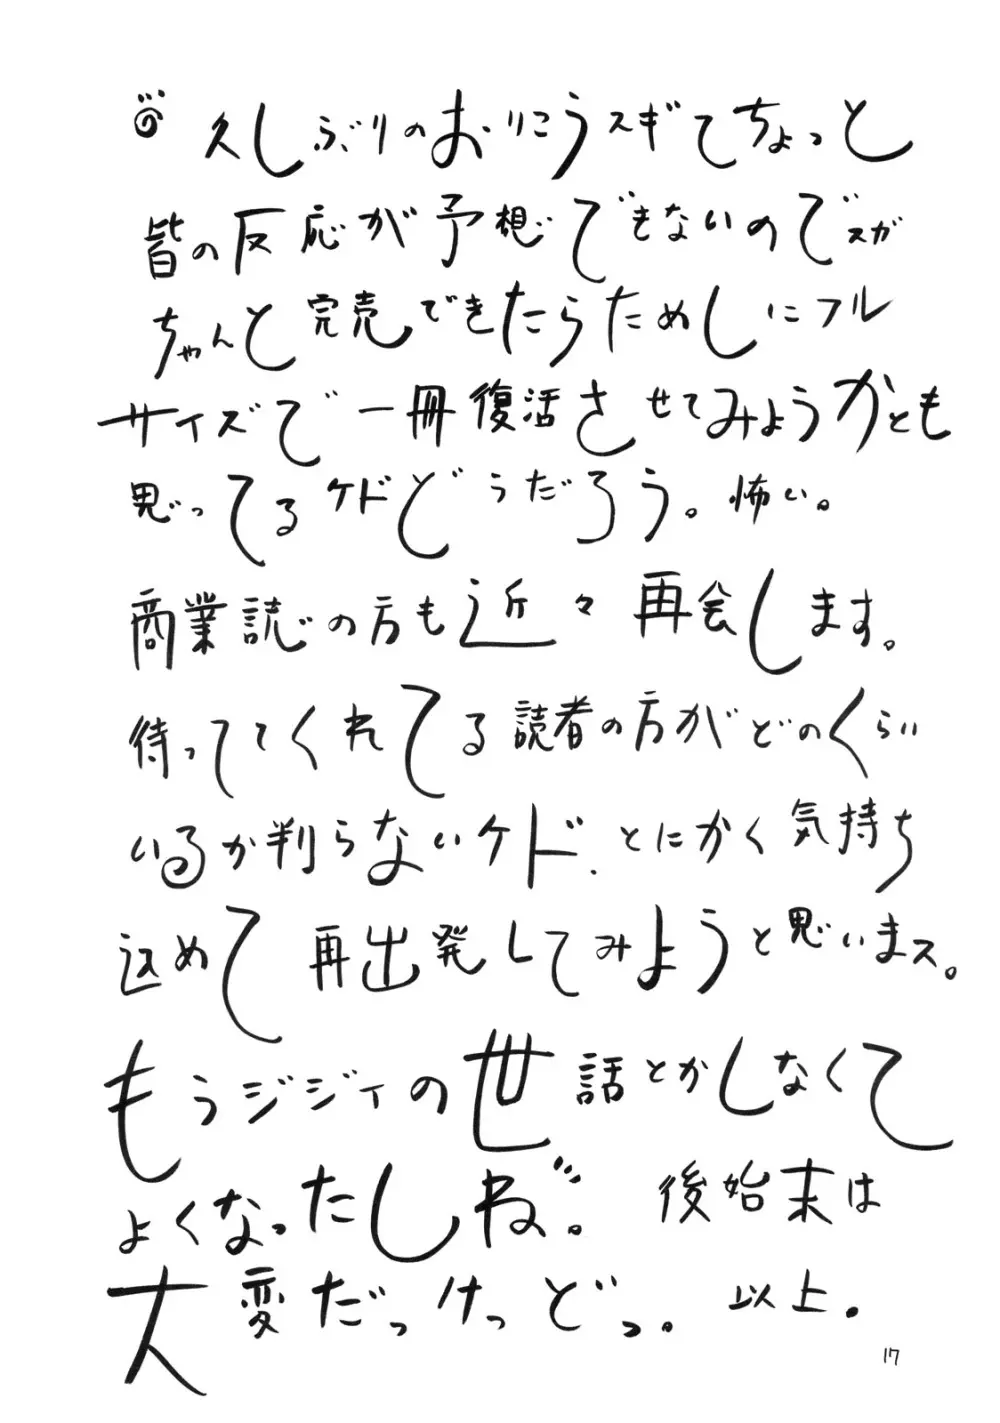 久しぶりのおりこうスギてちょっと
皆の反応が予想じできもないのでスガ
ちゃんと完売できたらためしにフル
サイズで一冊復活させてみようかとも
思ってるケドどうだろう。怖い。
商業誌の方も近々再会します。
待っててくれてる読者の方がどのくらい
いるか判らないケド、とにかく気持ち
込めて再出発してみようと思いまス。
もうジジィの世話とかしなくて
よくなったしね。後始末は
大変だっけっどっ。以上。
17